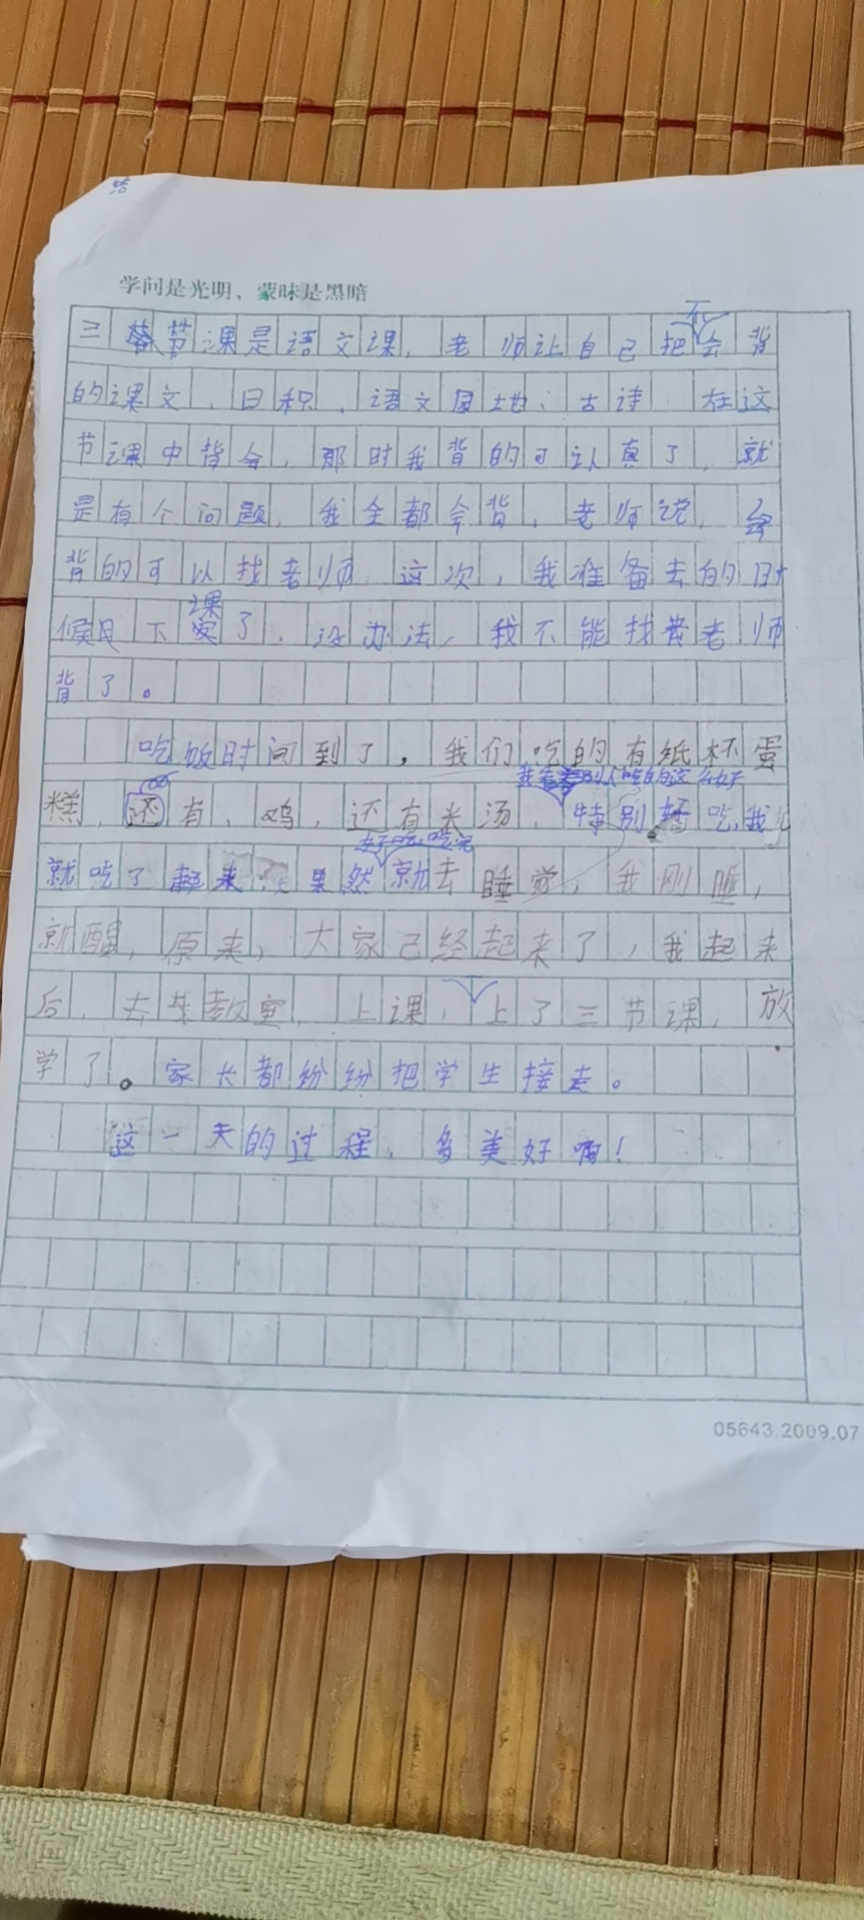 学问是光明、蒙昧是黑暗
不
三节课是语文课，老师让自己把会背
的课文、日积、语文园地、古诗，在这
节课中背会，那时我背的可认真了，就
是有个问题，我全都会背，老师说，会
背的可以找老师，这次，我准备去的时
课
候下了，没办法，我不能找老师
背了。
吃饭时间到了，我们吃的有纸杯蛋
我看别人吃的这么好
糕，还有，鸡，还有米汤，特别好吃，我
好吃，吃完
就吃了起来，果然就去睡觉，我刚睡，
就醒，原来，大家已经起来了，我起来
后，去教室，上课，上了三节课，放
学了。家长都纷纷把学生接走。
这一天的过程，多美好啊！
05643.2009.07